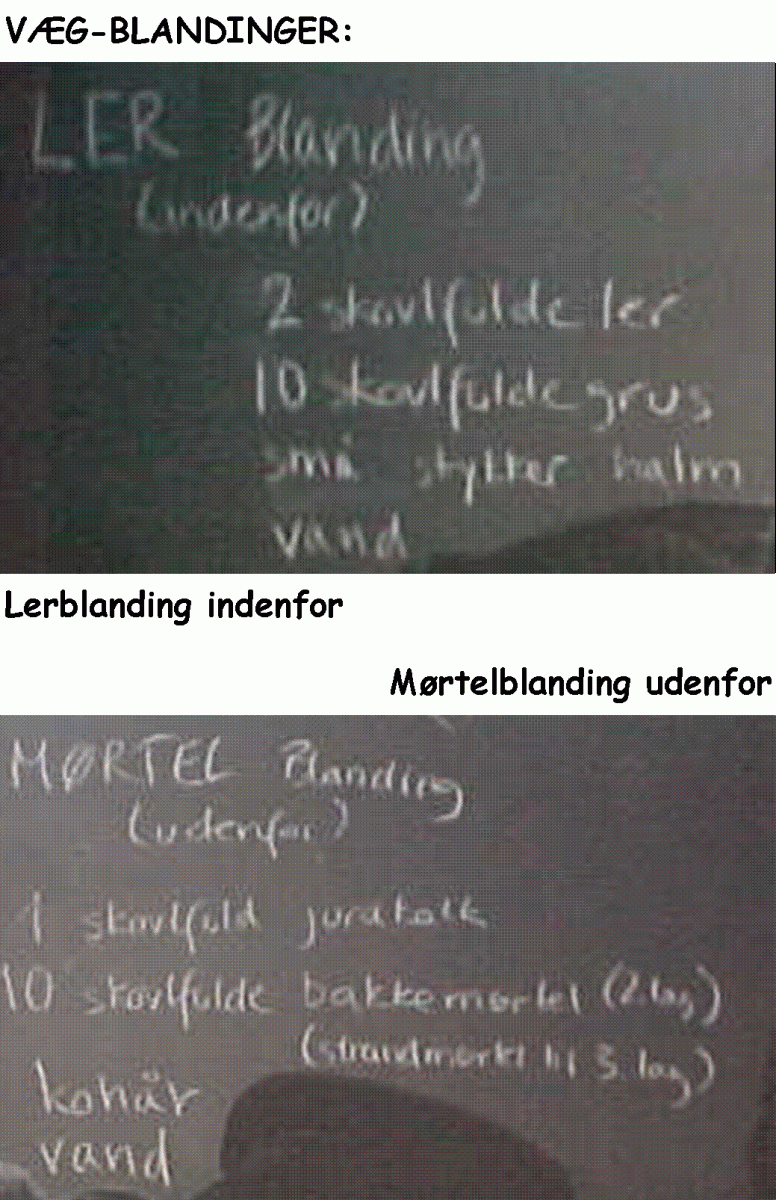 VÆG-BLANDINGER:
LER Blanding
(indenfor)
2 skovlfulde ler
10 skovlfulde grus
små stykker halm
vand
Lerblanding indenfor
Mørtelblanding udenfor
MØRTEL Blanding
(udenfor)
1 skovlfuld jurakalk
10 skovlfulde bakkemørtel (2 lag)
(strandmørtel til 3. lag)
kohår
vand